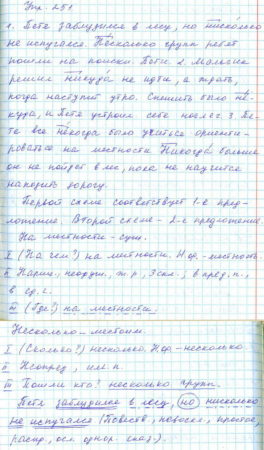 Упр. 251
1. Петя заблудился в лесу, но нисколько
не испугался. Несколько групп ребят
пошли на поиски Пети. 2. Мальчик
решил никуда не идти, а ждать,
когда наступит утро. Спешить было не-
куда, и Петя устроил себе ночлег. 3. Пе-
те все некогда было учиться ориенти-
роваться на местности. Никогда больше
он не пойдет в лес, пока не научится
находить дорогу.
Первой схеме соответствует 1-е пред-
ложение. Второй схеме - 2-е предложение.
На местности - сущ.
I (На чем?) на местности. Н.ф. - местность.
II Нариц., неодуш., ж.р., 3 скл.; в предл. п.,
в ед. ч.
III (Где?) на местности.
Несколько - местоим.
I (Сколько?) несколько. Н.ф. - несколько
II Неопред., им. п.
III Пошли кто? несколько групп.
Петя заблудился в лесу, но нисколько
не испугался (Повеств., невоскл., простое,
распр., осл. однор. сказ.).